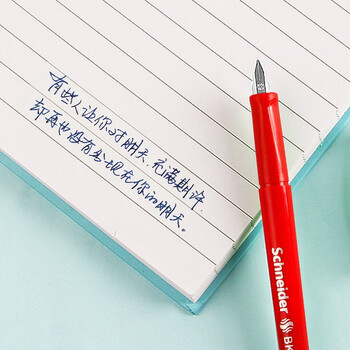 有些人让你对明天充满期许
却再也没有出现在你的明天。
Schneider BK